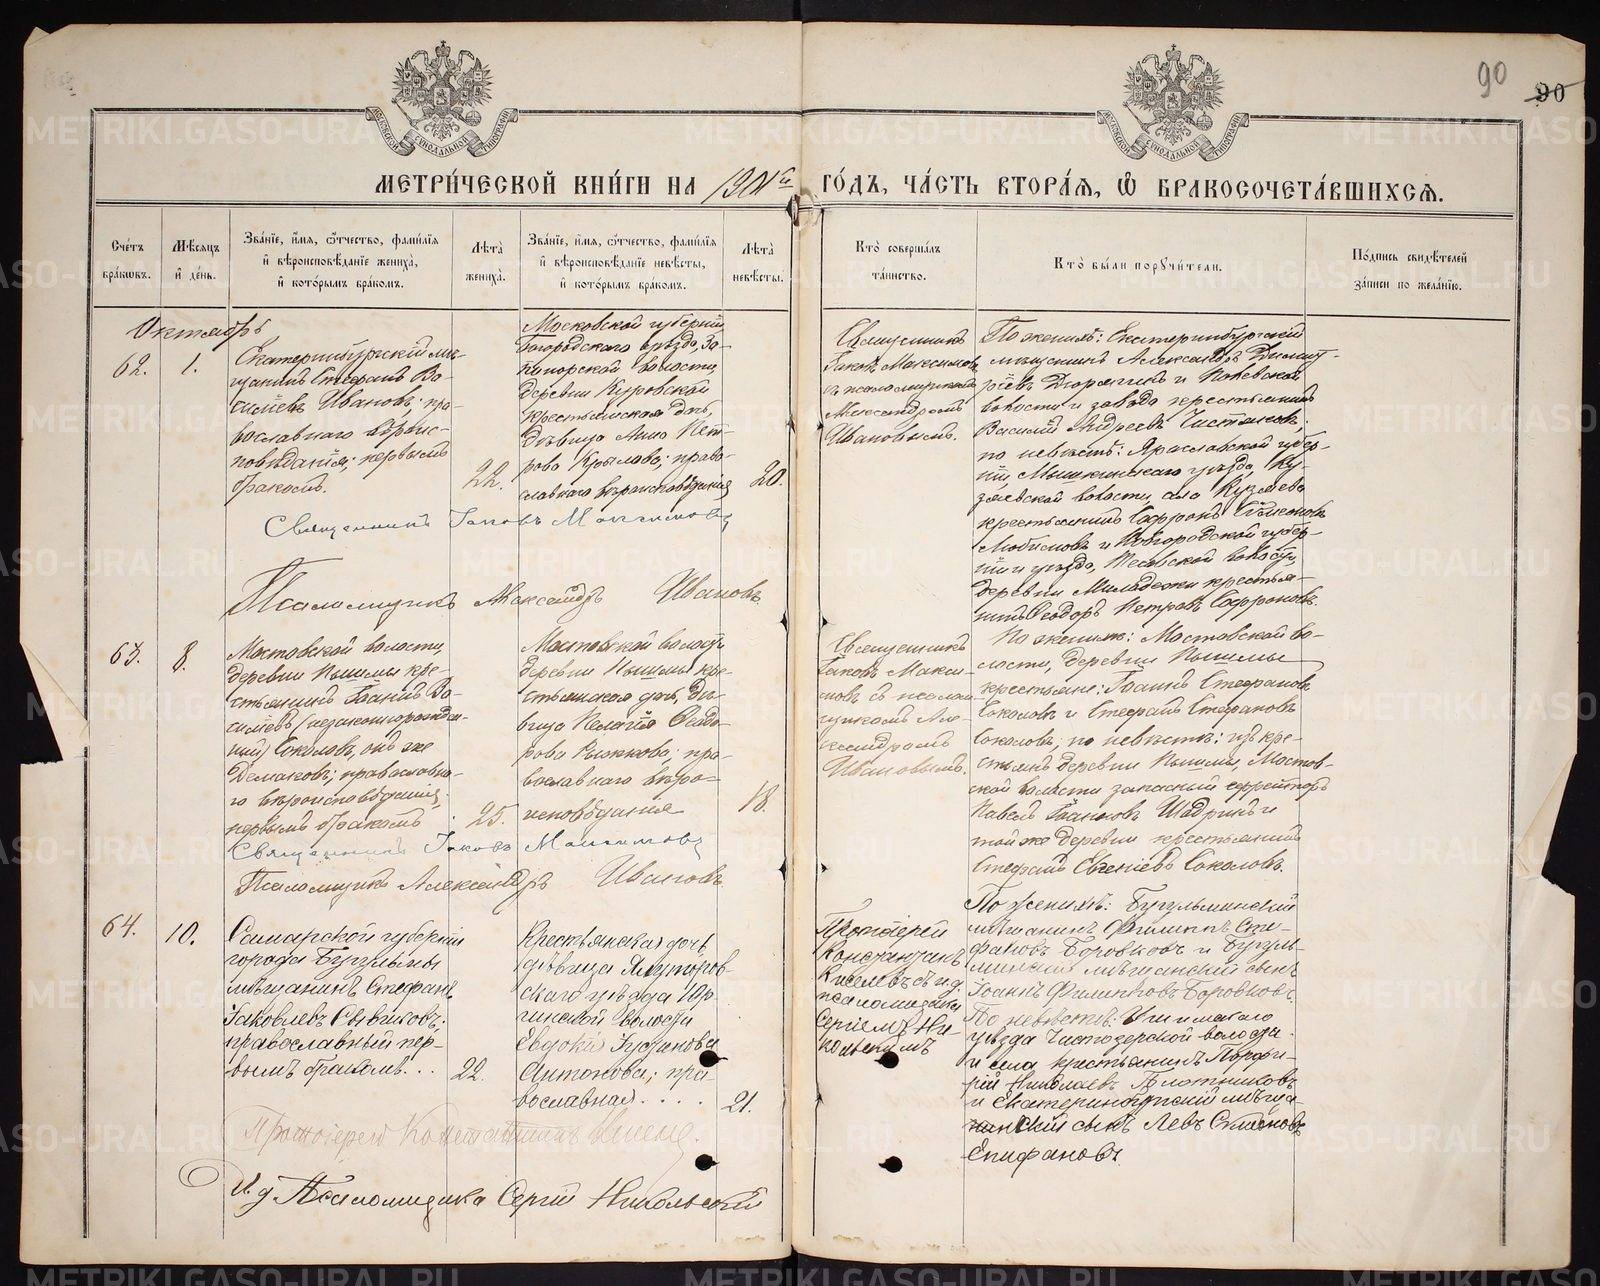 90
90
МЕТРИ́ЧЕСКОЙ КНИ́ГИ НА 1901й ГО́ДЪ, ЧА́СТЬ ВТОРА́Ѧ, Ѽ БРАКОСОЧЕТА́ВШИХСѦ.
Сче́тъ бра́ковъ.
Мѣ́сяцъ и҆ де́нь.
Зва́нїе, и҆́мя, ѻ҆́тчество, фами́лїя и҆ вѣроисповѣ́данїе жениха̀, и҆ кото́рымъ бра́комъ.
Лѣ́та жениха̀.
Зва́нїе, и҆́мя, ѻ҆́тчество, фами́лїя и҆ вѣроисповѣ́данїе невѣ́сты, и҆ кото́рымъ бра́комъ.
Лѣ́та невѣ́сты.
Кто̀ соверша́лъ та́инство.
Кто̀ бы́ли поручи́тели.
По́дпись свидѣ́телей за́писи по жела́нїю.
Октябрь
62.
1.
Екатеринбургскій мѣ-
щанинъ Стефанъ Ва-
силіевъ Ивановъ; пра-
вославнаго вѣроис-
повѣданія; первымъ
бракомъ.
22.
Московской губерніи,
Богородскаго уѣзда, За-
понорской волости,
деревни Куровской
крестьянская дочь,
дѣвица Анна Пет-
рова Крылова; право-
славнаго вѣроисповѣданія
20.
Священникъ
Іаковъ Максимовъ
съ псаломщикомъ
Александромъ
Ивановымъ.
По женихѣ: Екатеринбургскій
мѣщанинъ Александръ Димит-
ріевъ и
волости и завода крестьянинъ
Василій Андреевъ Чистяковъ;
по невѣстѣ: Ярославской губер-
ніи, Мышкинскаго уѣзда, Ку-
зяевской волости, села Кузяева
крестьянинъ Софронъ
Любимовъ и Новгородской губер-
ніи и уѣзда, волости,
деревни крестья-
нинъ Ѳеодоръ Петровъ Софроновъ.
Священникъ Іаковъ Максимовъ
Псаломщикъ Александръ Ивановъ.
63.
8.
Мостовской волости,
деревни Пышмы кре-
стьянинъ Іоаннъ Ва-
силіевъ (незаконнорожден-
ный) Соколовъ, онъ же
Демаковъ; православна-
го вѣроисповѣданія,
первымъ бракомъ
25.
Мостовской волости
деревни Пышмы кре-
стьянская дочь, дѣ-
вица Пелагія Ѳеодо-
рова; пра-
вославнаго вѣро-
исповѣданія
18.
Священникъ
Іаковъ Макси-
мовъ съ псалом-
щикомъ Але-
ксандромъ
Ивановымъ.
По женихѣ: Мостовской во-
лости, деревни Пышмы
крестьяне: Іоаннъ Стефановъ
Соколовъ и Стефанъ Стефановъ
Соколовъ; по невѣстѣ: изъ кре-
стьянъ деревни Пышмы, Мостов-
ской волости запасный ефрейторъ
Павелъ Іоанновъ Шадринъ и
той же деревни крестьянинъ
Стефанъ Евгеніевъ Соколовъ.
Священникъ Іаковъ Максимовъ
Псаломщикъ Александръ Ивановъ
64.
10.
Самарской губерніи
города Бугульмы
мѣщанинъ Стефанъ
Іаковлевъ Сывяковъ;
православный пер-
вымъ бракомъ...
22.
Крестьянская дочь
дѣвица Ялуторов-
скаго уѣзда Юр-
гинской волости
Евдокія Іустинова
Антонова; пра-
вославная....
21.
Протоіерей
Константинъ
Киселевъ съ и.д.
псаломщика
Сергіемъ Ни-
кольскимъ
По женихѣ: Бугульминскій
мѣщанинъ Филиппъ Сте-
фановъ Боровковъ и Бугуль-
минскій мѣщанскій сынъ
Іоаннъ Филипповъ Боровковъ.
По невѣстѣ: Ишимскаго
уѣзда Чистоозерской волости
и села крестьянинъ Порфи-
рій Николаевъ Плотниковъ
и Екатеринбургскій мѣща-
нскій сынъ Левъ Симоновъ
Епифановъ
Протоіерей Константинъ Киселевъ.
И. д. Псаломщика Сергій Никольскій
METRIKI.GASO-URAL.RU